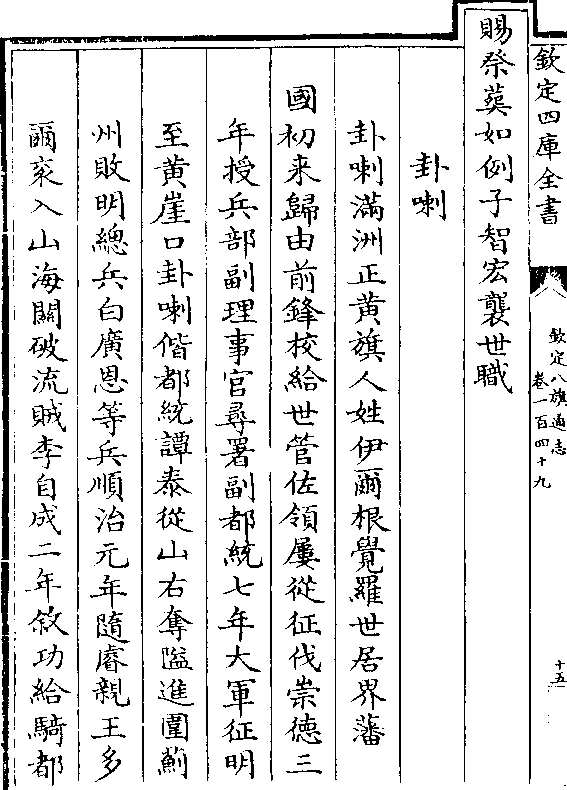 欽定四庫全書
欽定八旗通志
卷一百四十九
十五
賜祭葬如例子智宏襲世職
卦喇
卦喇滿洲正黃旗人姓伊爾根覺羅世居界藩
國初来歸由前鋒校給世管佐領屢從征伐崇德三
年授兵部副理事官尋署副都統七年大軍征明
至黃崖口卦喇偕都統譚泰從山右奪隘進圍薊
州敗明總兵白廣恩等兵順治元年隨睿親王多
爾袞入山海關破流賊李自成二年敘功給騎都